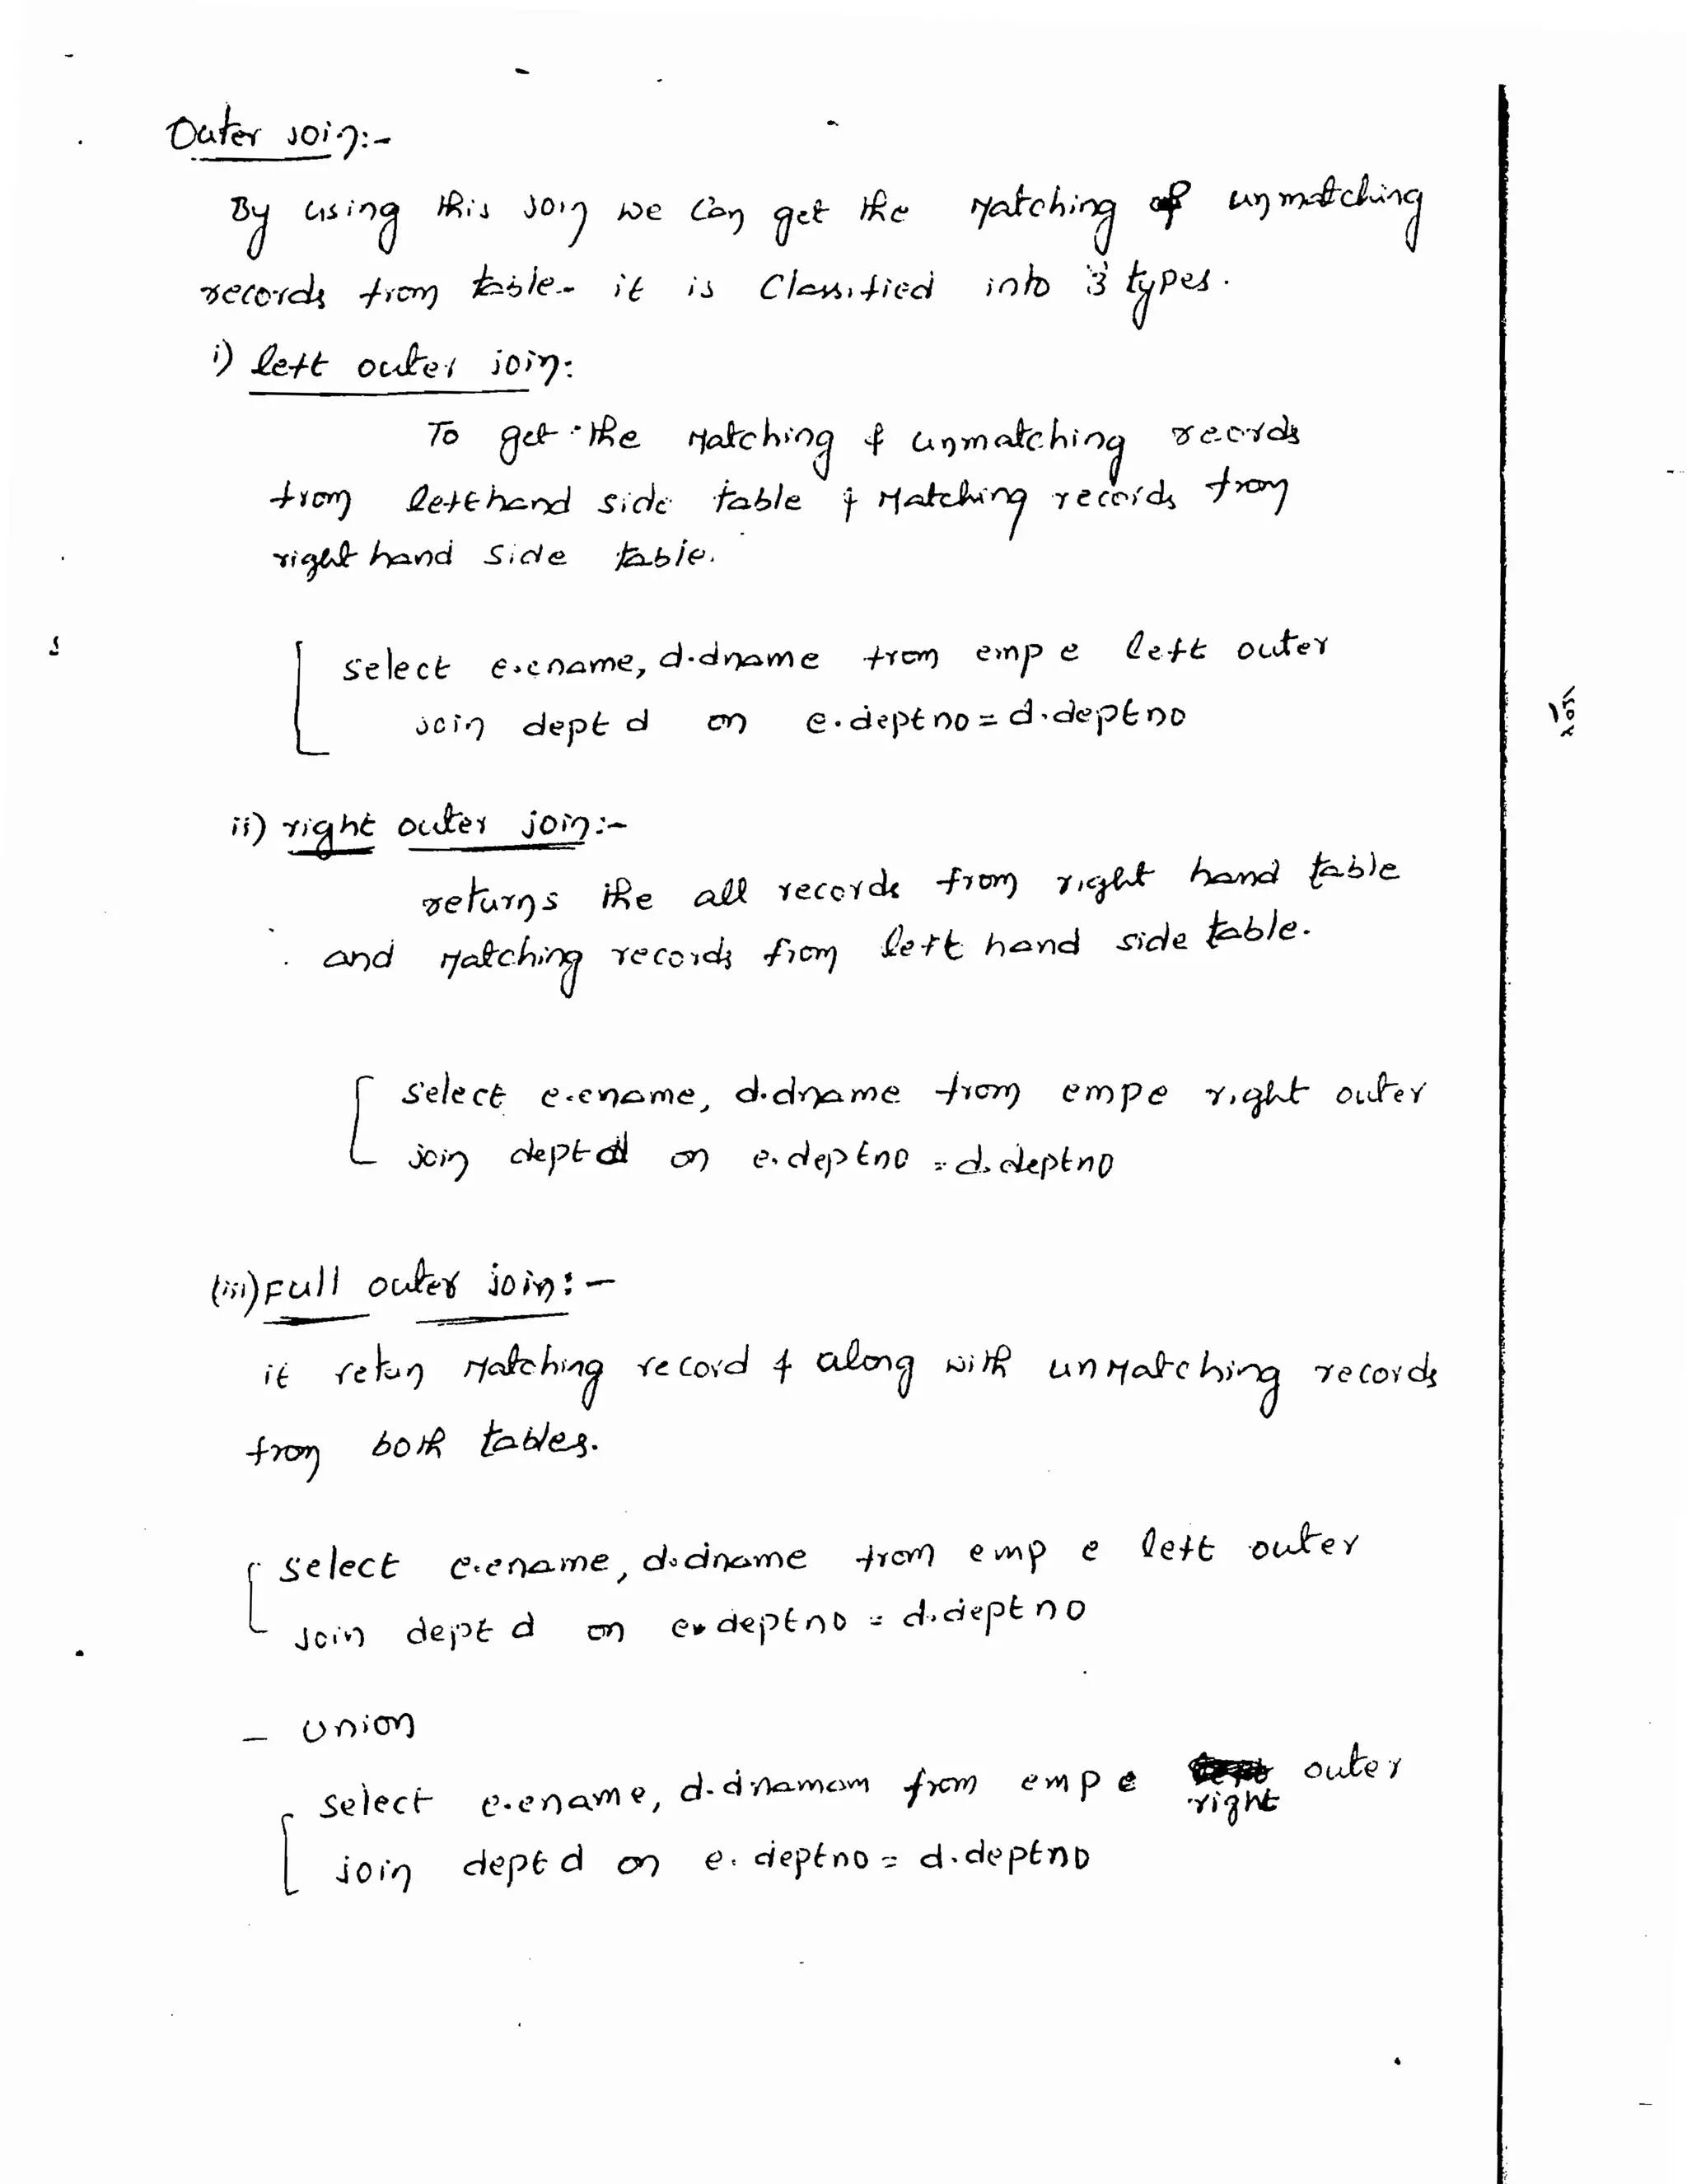 Outer join:-
By using this join we can get the Matching & unmatching
records from table. it is Classified into 3 types.
i) left outer join:
To get the Matching & unmatching records
from lefthand side table & Matching records from
right hand side table.
select e.ename, d.dname from emp e left outer
join dept d on e.deptno = d.deptno
ii) right outer join:-
returns the all records from right hand table
and Matching records from left hand side table.
select e.ename, d.dname from emp e right outer
join dept d on e.deptno = d.deptno
(iii) Full outer join:-
it retun Matching record & along with unMatching records
from both tables.
select e.ename, d.dname from emp e left outer
join dept d on e.deptno = d.deptno
- union
select e.ename, d.dnamem from emp e right outer
join dept d on e.deptno = d.deptno